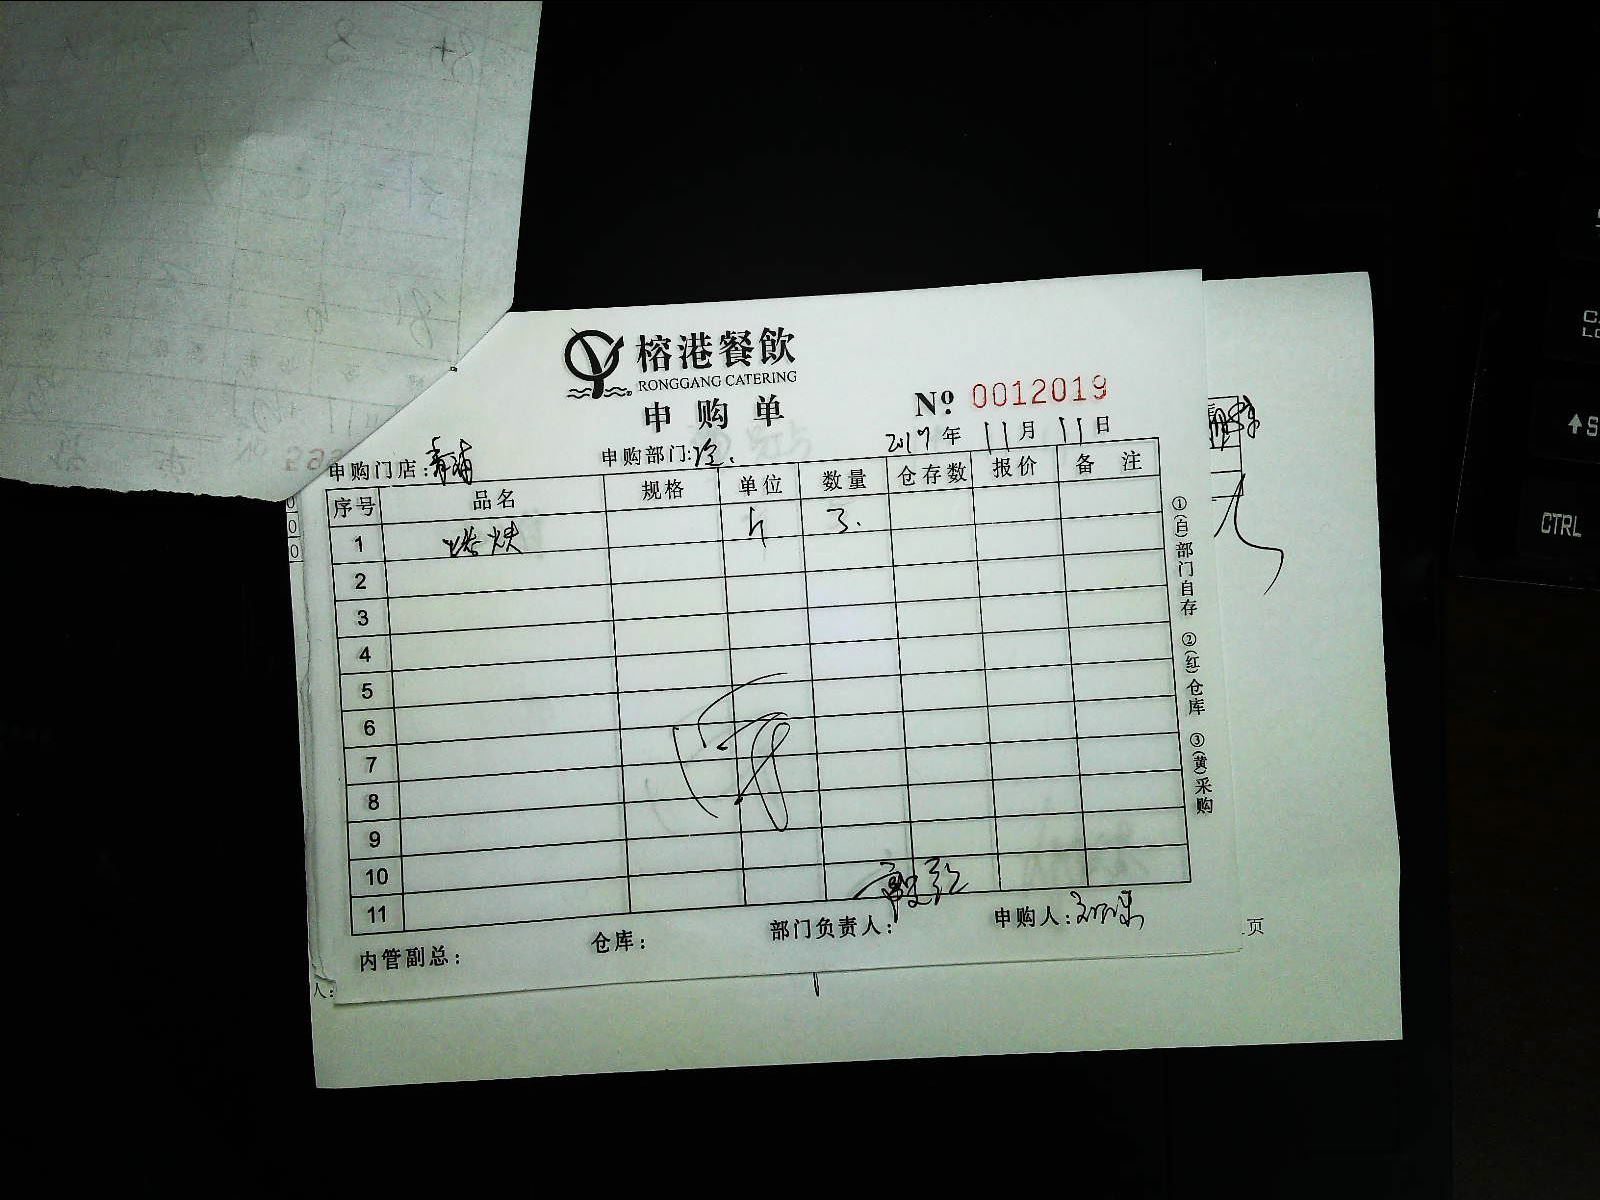 榕港餐飲
RONGGANG CATERING
申购单
№ 0012019
2017年 11月 11日
申购门店:青浦 申购部门:冷.
序号 品名 规格 单位 数量 仓存数 报价 备注
1 3.
2
3
4
5
6
7
8
9
10
11
内管副总: 仓库: 部门负责人: 申购人:
①(白)部门自存 ②(红)仓库 ③(黄)采购
页
人:
CTRL